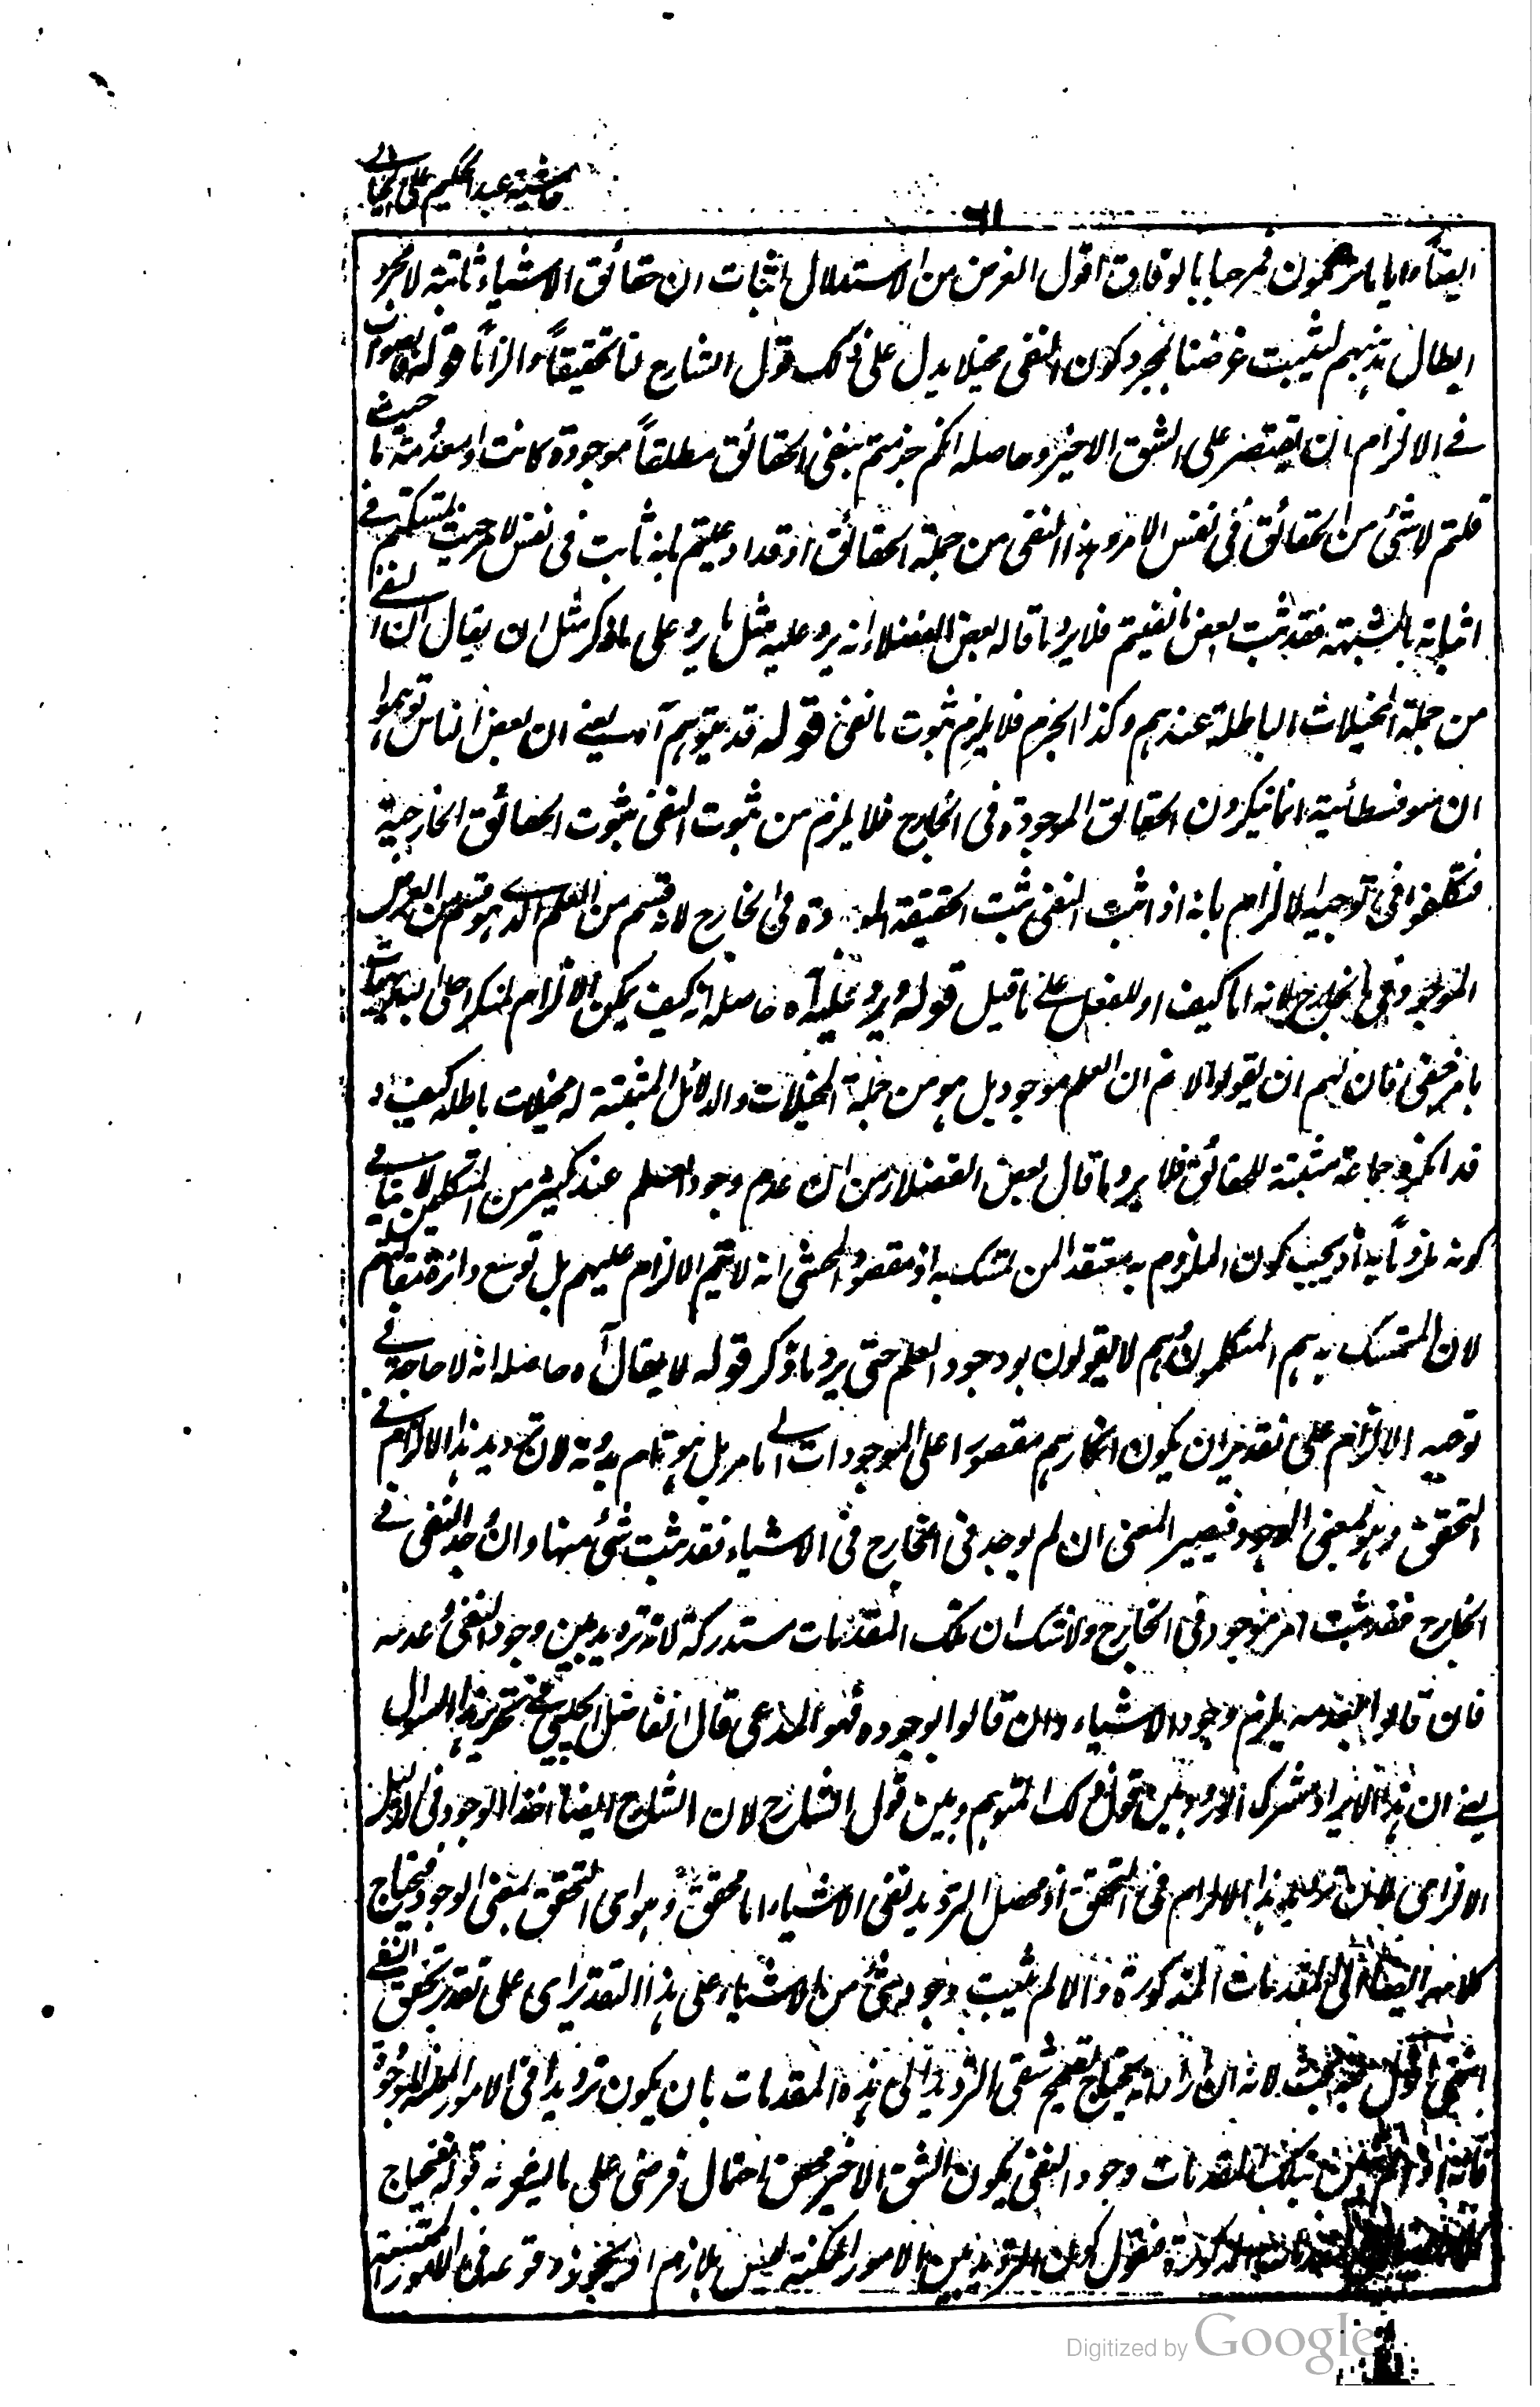 حاشية عبد الحكيم على الخيالي
٦١
ايضا فمرحبا بالوفاق اقول الغرض من الاستدلال اثبات ان حقائق الاشياء ثابتة لا مجرد
ابطال مذهبهم ليثبت غرضنا بمجرد كون النفى مخيلا يدل على ذلك قول الشارح لنا تحقيقاً والزاماً قوله والصواب
فے الالزام ان يقتصر على الشق الاخير وحاصله انكم جزمتم بنفى الحقائق مطلقاً موجودة كانت او معدومة حيث
قلتم لا شئ من الحقائق فى نفس الامر وهذا النفى من جملة الحقائق اذ قد ادعيتم بانه ثابت فى نفس الامر حيث تمسكتم فے
اثباته بالشبهة فقد ثبت بعض ما نفيتم فلا يرد ما قاله بعض الفضلاء انه يرد عليه مثل ما يرد على ما ذكر مثل ان يقال ان النفى
من جملة المخيلات الباطلة عندهم وكذا الجزم فلا يلزم ثبوت ما نفى قوله قد يتوهم آه يعنے ان بعض الناس توهموا
ان سوفسطائية انما ينكرون الحقائق الموجودة فى الخارج فلا يلزم من ثبوت النفى ثبوت الحقائق الخارجية
فتكلفوا فى توجيه الالزام بانه اذا ثبت النفى ثبت الحقيقة الموجودة فى الخارج لانه قسم من العلم الذے هو قسم من العرض
الموجود فى الخارج لانه اما كيف او انفعال علے ما قيل قوله ويرد عليه آه حاصله انه كيف يمكن الالزام لمنكر اجلى البديهيات
بامر خفى فان لهم ان يقولوا لا نم ان العلم موجود بل هو من جملة المخيلات والدلائل المثبتة له مخيلات باطله كيف و
قد انكره جماعة مثبتة للحقائق فلا يرد ما قال بعض الفضلاء من ان عدم وجود العلم عند كثير من المتكلمين لا ينافے
كونه ملزوماً به اذ يجب كون الملزوم به معتقدا لمن تمسك به اذ مقصود المحشى انه لا يتم الالزام عليهم بل توسع دائرة مقالتهم
لان المتمسك به هم المتكلمون وهم لا يقولون بوجود العلم حتى يرد ما ذكر قوله لا يقال آه حاصله انه لا حاجة فے
توجيه الالزام على تقدير ان يكون انكارهم مقصورا على الموجودات الى ما مر بل هو تام بدونه لان ترديد هذا الالزام فے
التحقق وهو بمعنى الوجود فيصير المعنى ان لم يوجد فى الخارج فى الاشياء فقد ثبت شئ منها وان وجد النفى فے
الخارج فقد ثبت امر موجود فى الخارج ولا شك ان تلك المقدمات مستدركة لانه ترديد بين وجود النفى وعدمه
فان قالوا بعدمه يلزم وجود الاشياء وان قالوا بوجوده فهو المدعى قال الفاضل الچلپى فے تحرير هذا السوال
يعنے ان هذا الايراد مشترك الورود بين قول ذلك المتوهم وبين قول الشارح لان الشارح ايضا اخذ الوجود فى الدليل
الالزامى لان ترديد هذا الالزام فى التحقق اذ محصل الترديد نفى الاشياء اما محقق او لا وهو اى التحقق بمعنى الوجود فيحتاج
كلامه ايضا الى المقدمات المذكورة والا لم يثبت وجود شئ من الاشياء على هذا التقدير اى على تقدير تحقق النفے
انتهى اقول فيه بحث لانه ان اراد انه يحتاج تصحيح شقى الترديد الى هذه المقدمات بان يكون ترديدا فى الامور الموجودة
تلك المقدمات وجود النفى يكون الشق الاخير محض احتمال فرضى على ما يفيده قوله فيحتاج
المذكورة فنقول كون الترديد بين الامور الممكنة ليس بلازم اذ يجوز وقوعه فى الامور الممتنعة